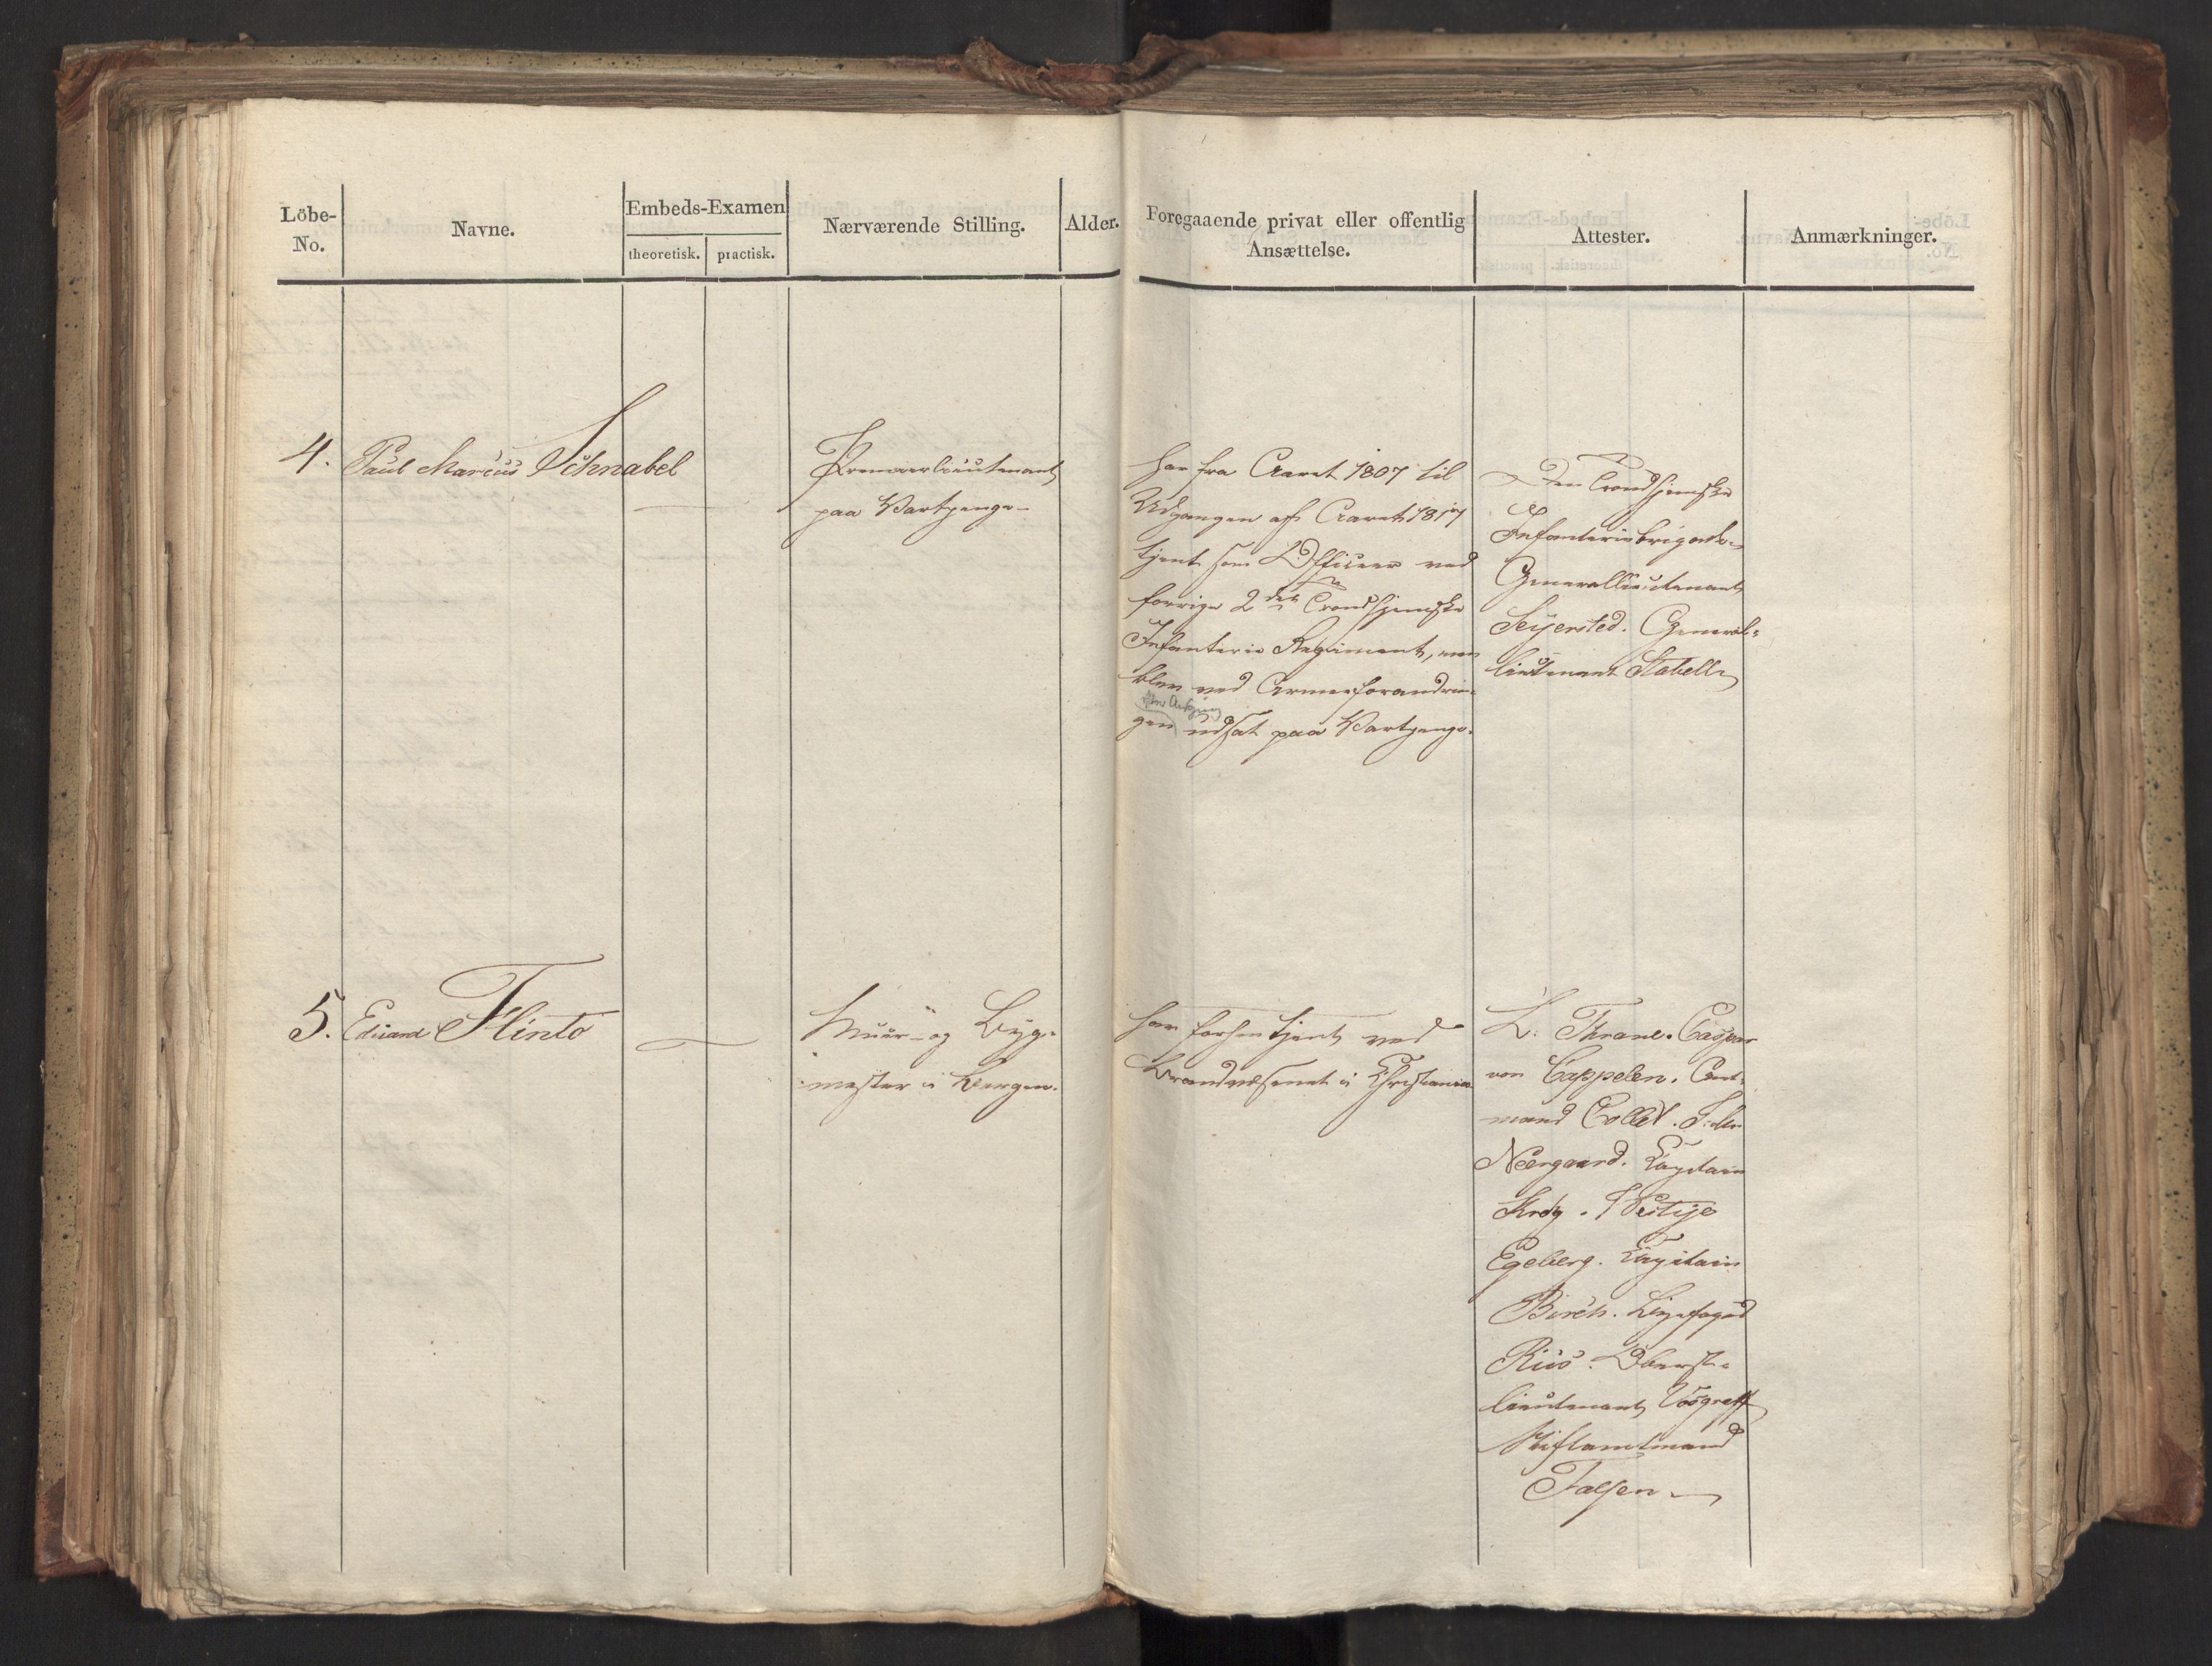 Löbe-
No.
Navne.
Embeds-Examen
theoretisk.
practisk.
Nærværende Stilling.
Alder.
Foregaaende privat eller offentlig
Ansættelse.
Attester.
Anmærkninger.
4.
Paul Marcus Schnabel
Premierlieutenant
paa Vartpenge
har fra Aaret 1807 til
Udgangen af Aaret 1817
tjent som Officeer ved
forrige 2det Trondhjemske
Infanterie Regiment, men
blev ved Armeeforandrin-
gen udsat paa Vartpenge.
Den Trondhjemske
Infanteriebrigade
Generallieutenant
Seyersted. General-
lieutenant Stabell
5.
Eduard Flinto
Muur- og Byg-
mester i Bergen.
har forhen tjent ved
Brandvæsenet i Christiania
L. Thrane. Caspar
von Cappelen. Amt-
mand Collet.
Neergaard. Capitain
Krog. Westye
Egeberg. Capitain
Birch. Byefoged
Riis. Oberst-
lieutenant Vosgraff
Stiftamtmand
Falsen